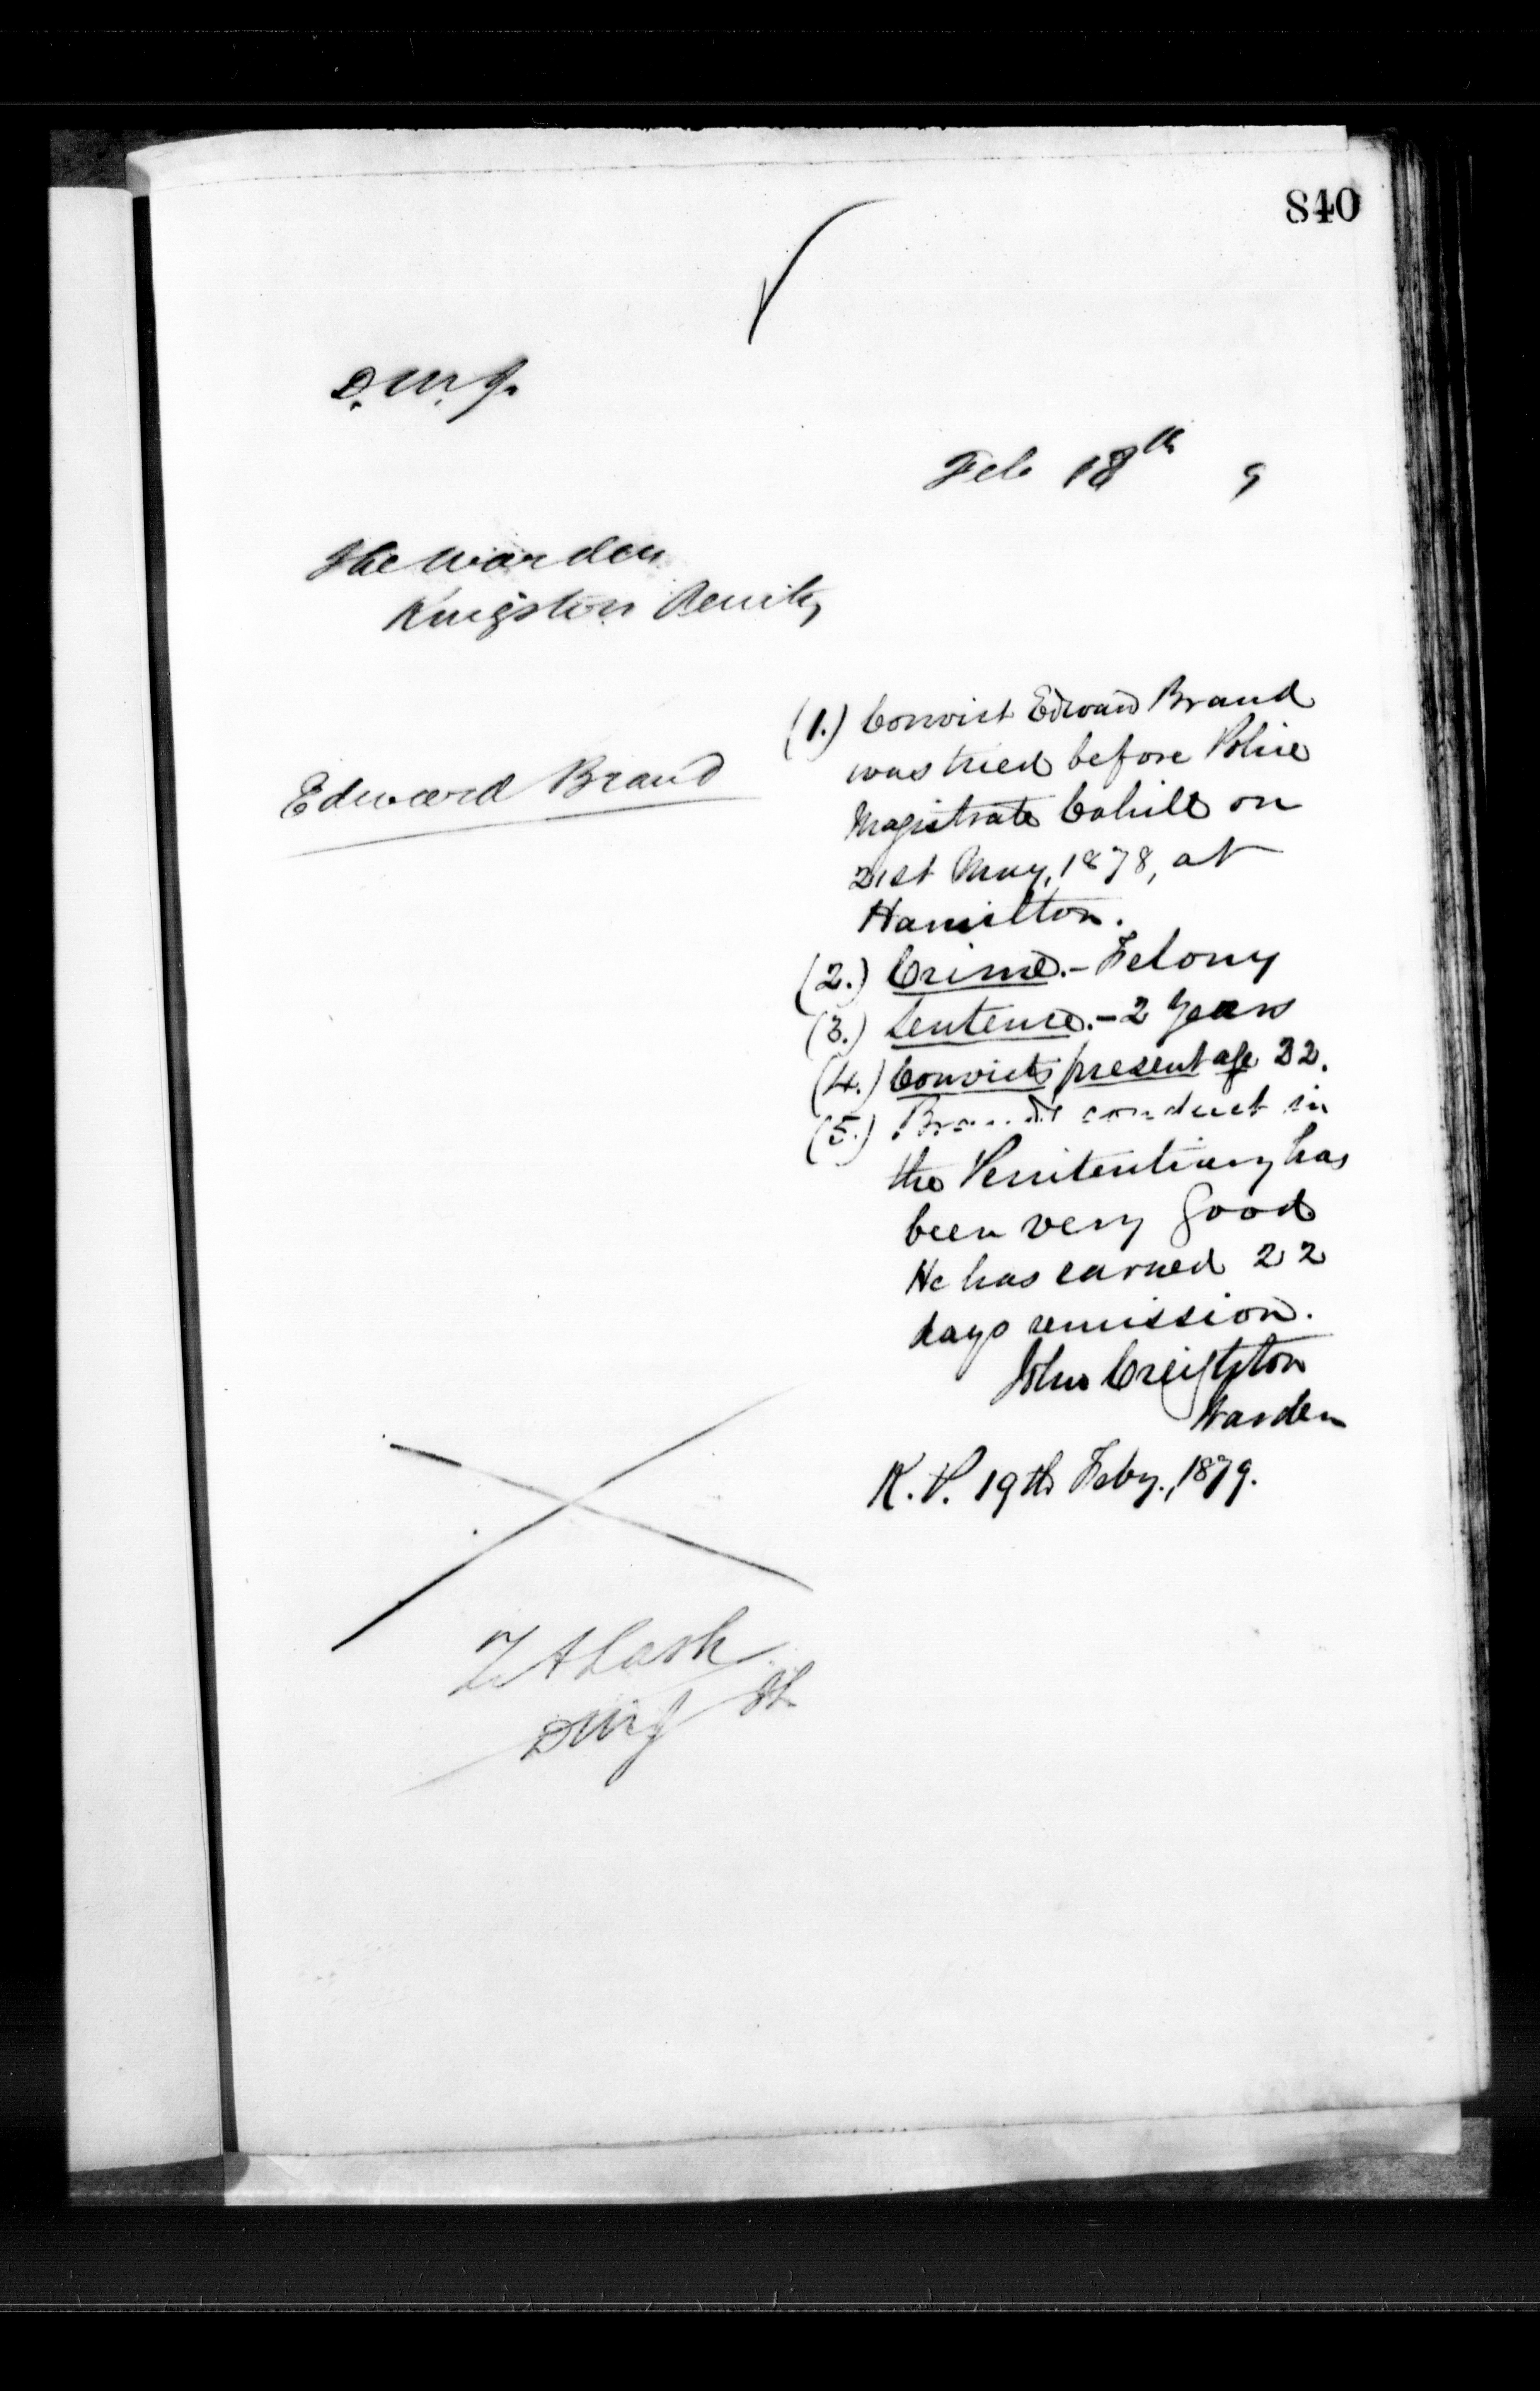 840
D.M.J.
Feb 18th 9
The Warden
Kingston Penity
Edward Brand
(1.) Convict Edward Brand
was tried before Police
Magistrate Cahill on
21st May, 1878, at
Hamilton.
(2.) Crime.- Felony
(3.) Sentence.- 2 Years
(4.) Convicts present age 22.
(5.) Brand's conduct in
the Penitentiary has
been very good
He has earned 22
days remission.
John Creighton
Warden
K.P. 19th Feby., 1879.
Z A Lash
DMJ